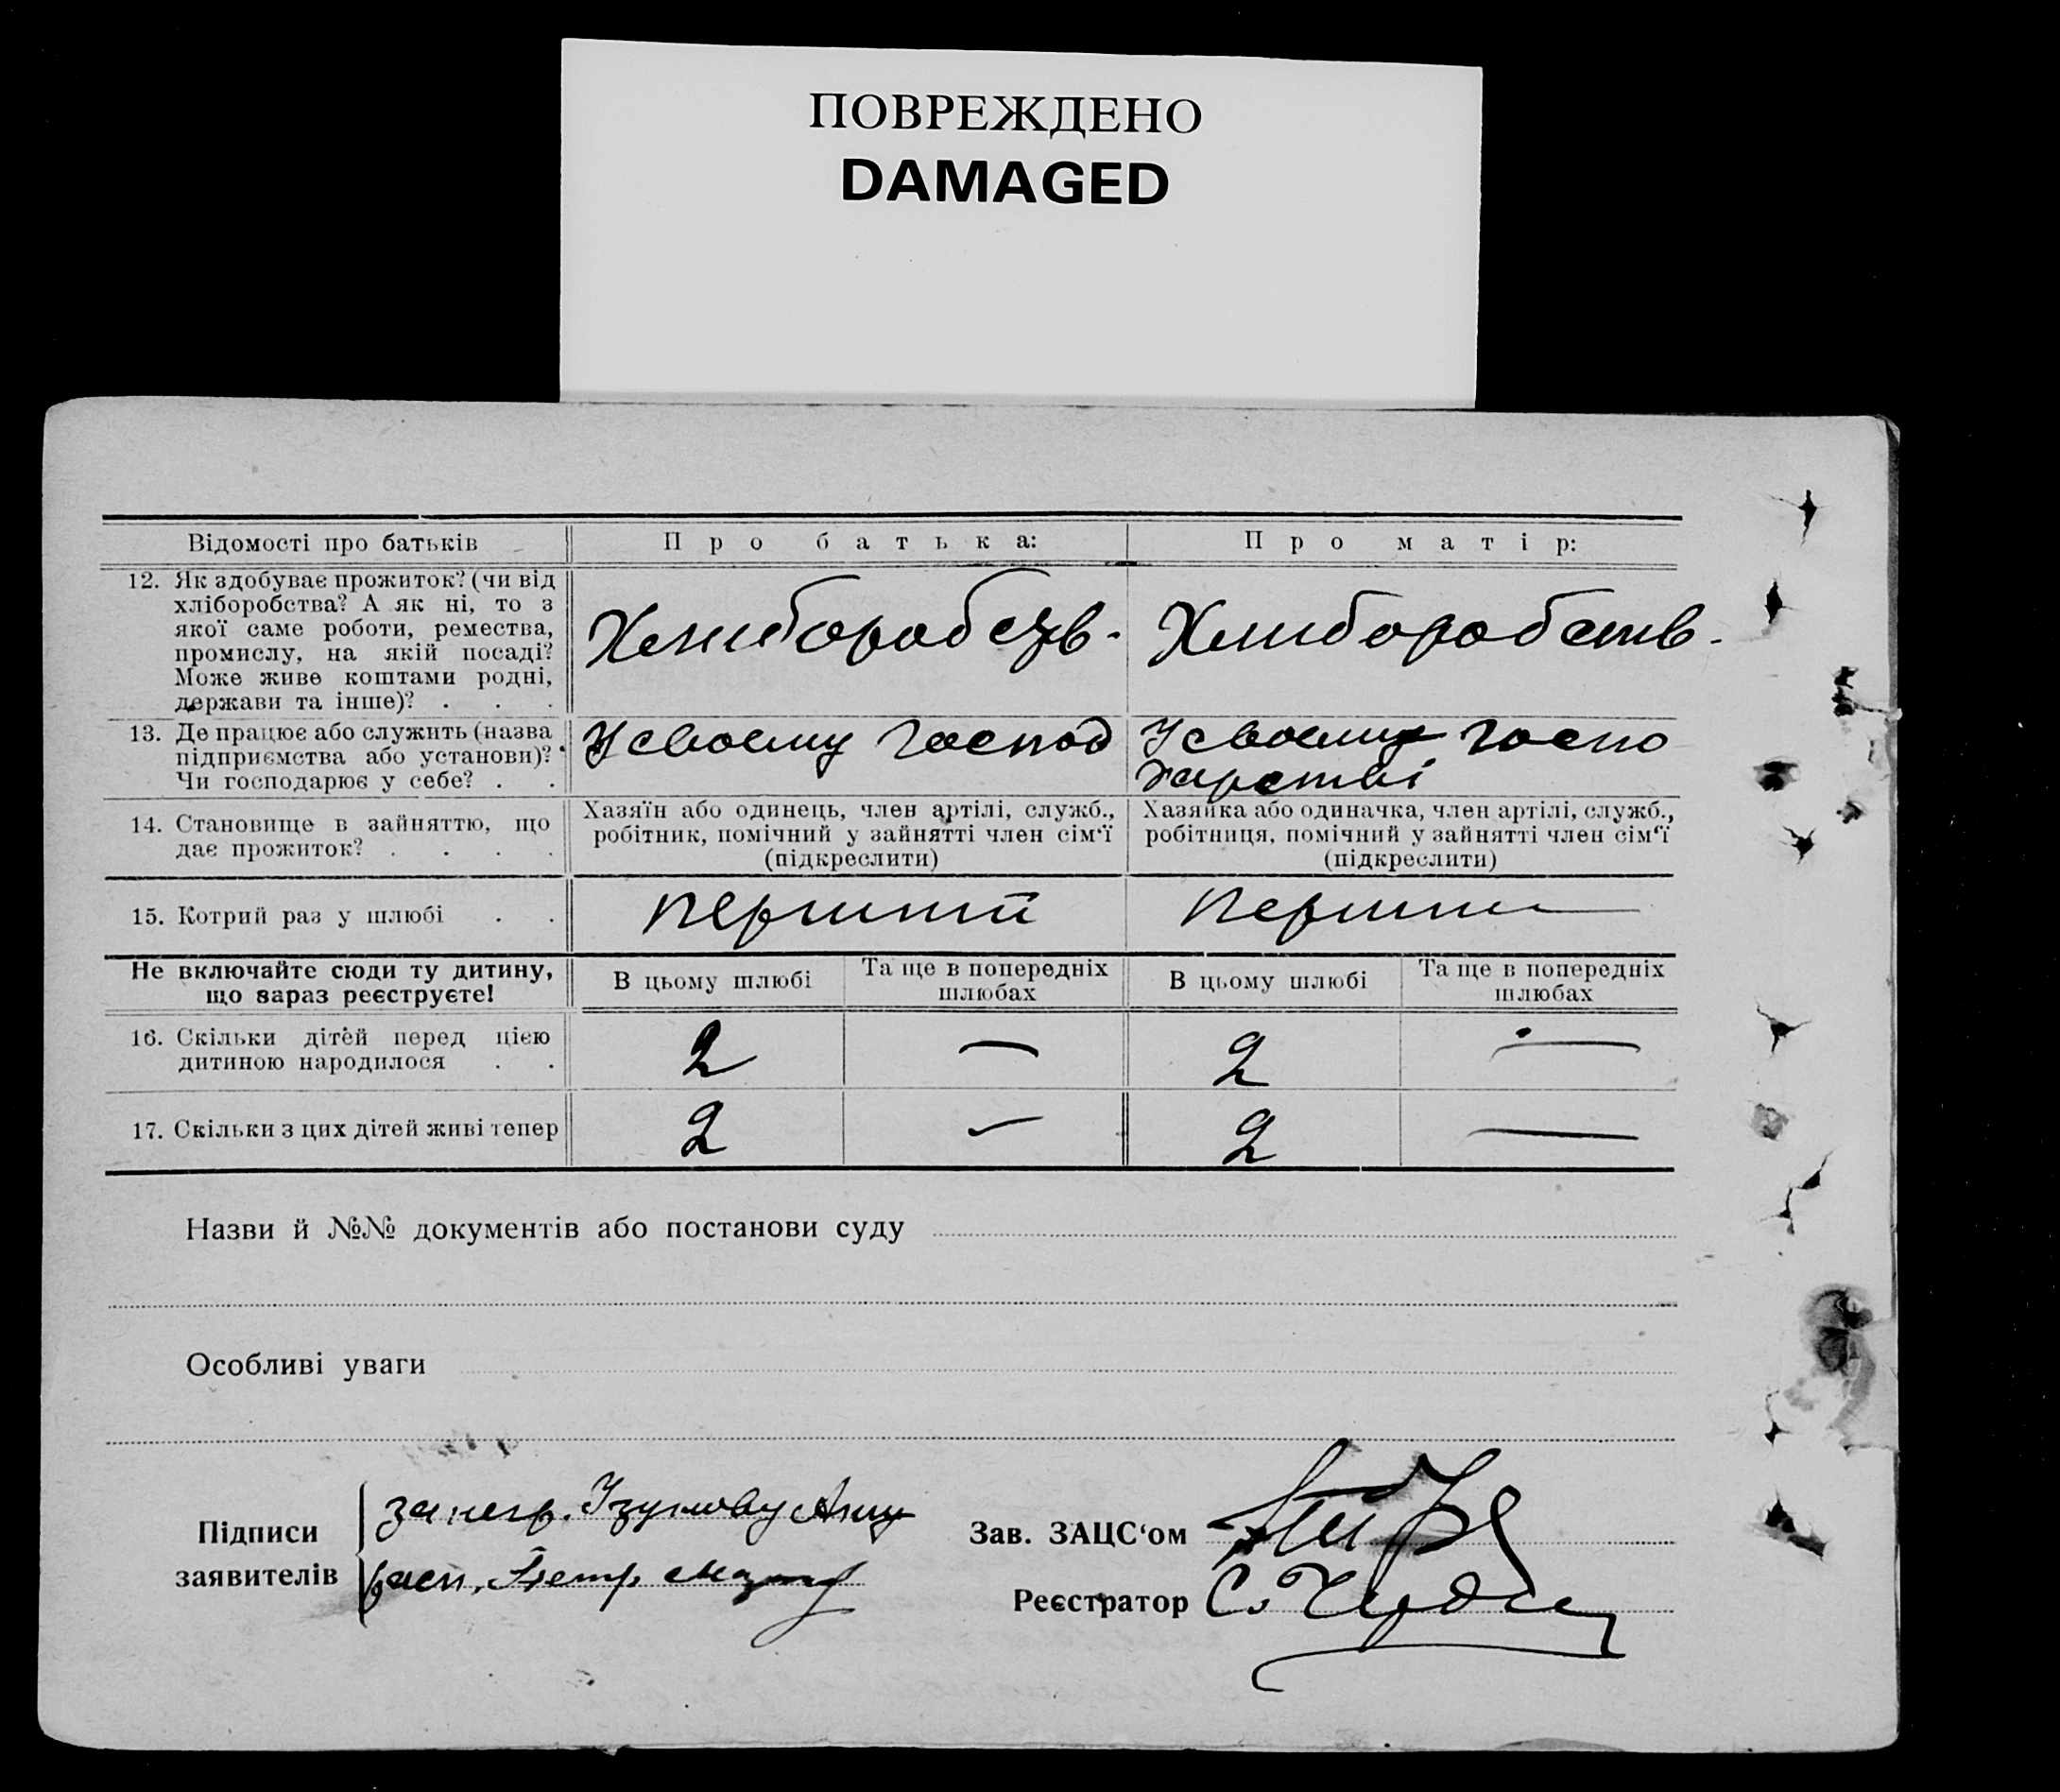 ПОВРЕЖДЕНО
DAMAGED
Відомості про батьків
Про батька:
Про матір:
12. Як здобуває прожиток? (чи від
хліборобства? А як ні, то з
якої саме роботи, ремества,
промислу, на якій посаді?
Може живе коштами родні,
держави та інше)? . . .
Хлиборобств.
Хлиборобств.
13. Де працює або служить (назва
підприємства або установи)?
Чи господарює у себе? . .
У своему господ
У своему госпо
дарстві
14. Становище в зайняттю, що
дає прожиток? . . . .
Хазяїн або одинець, член артілі, служб.,
робітник, помічний у зайнятті член сім'ї
(підкреслити)
Хазяйка або одиначка, член артілі, служб.,
робітниця, помічний у зайнятті член сім'ї
(підкреслити)
15. Котрий раз у шлюбі . .
перший
перши
Не включайте сюди ту дитину,
що зараз реєструєте!
В цьому шлюбі
Та ще в попередніх
шлюбах
В цьому шлюбі
Та ще в попередніх
шлюбах
16. Скільки дітей перед цією
дитиною народилося . .
2
—
2
—
17. Скільки з цих дітей живі тепер
2
—
2
—
Назви й №№ документів або постанови суду
Особливі уваги
Підписи
заявителів
за негр. Анну
расп. Петр
Зав. ЗАЦС'ом
Реєстратор